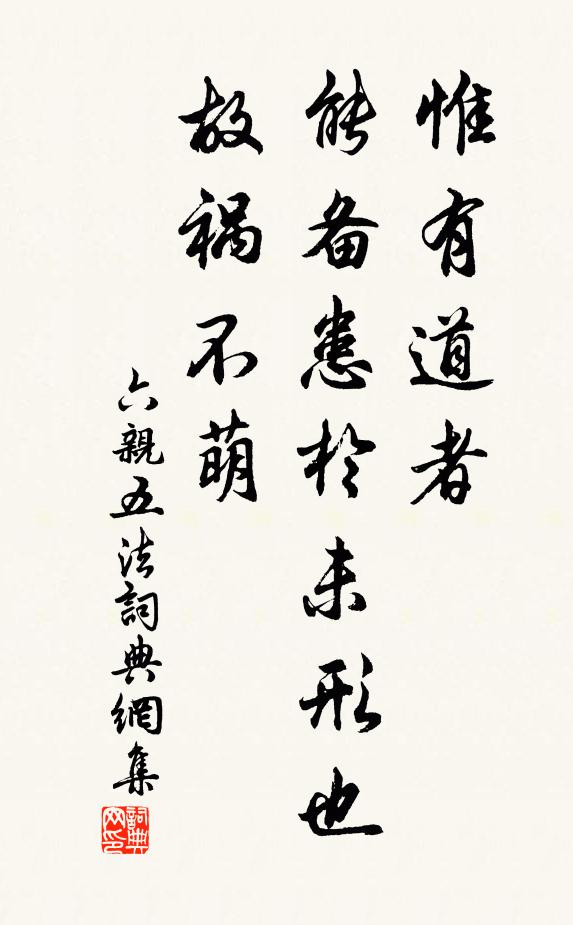 惟有道者
能备患於未形也
故祸不萌
六親五法詞典網集
詞典
网印